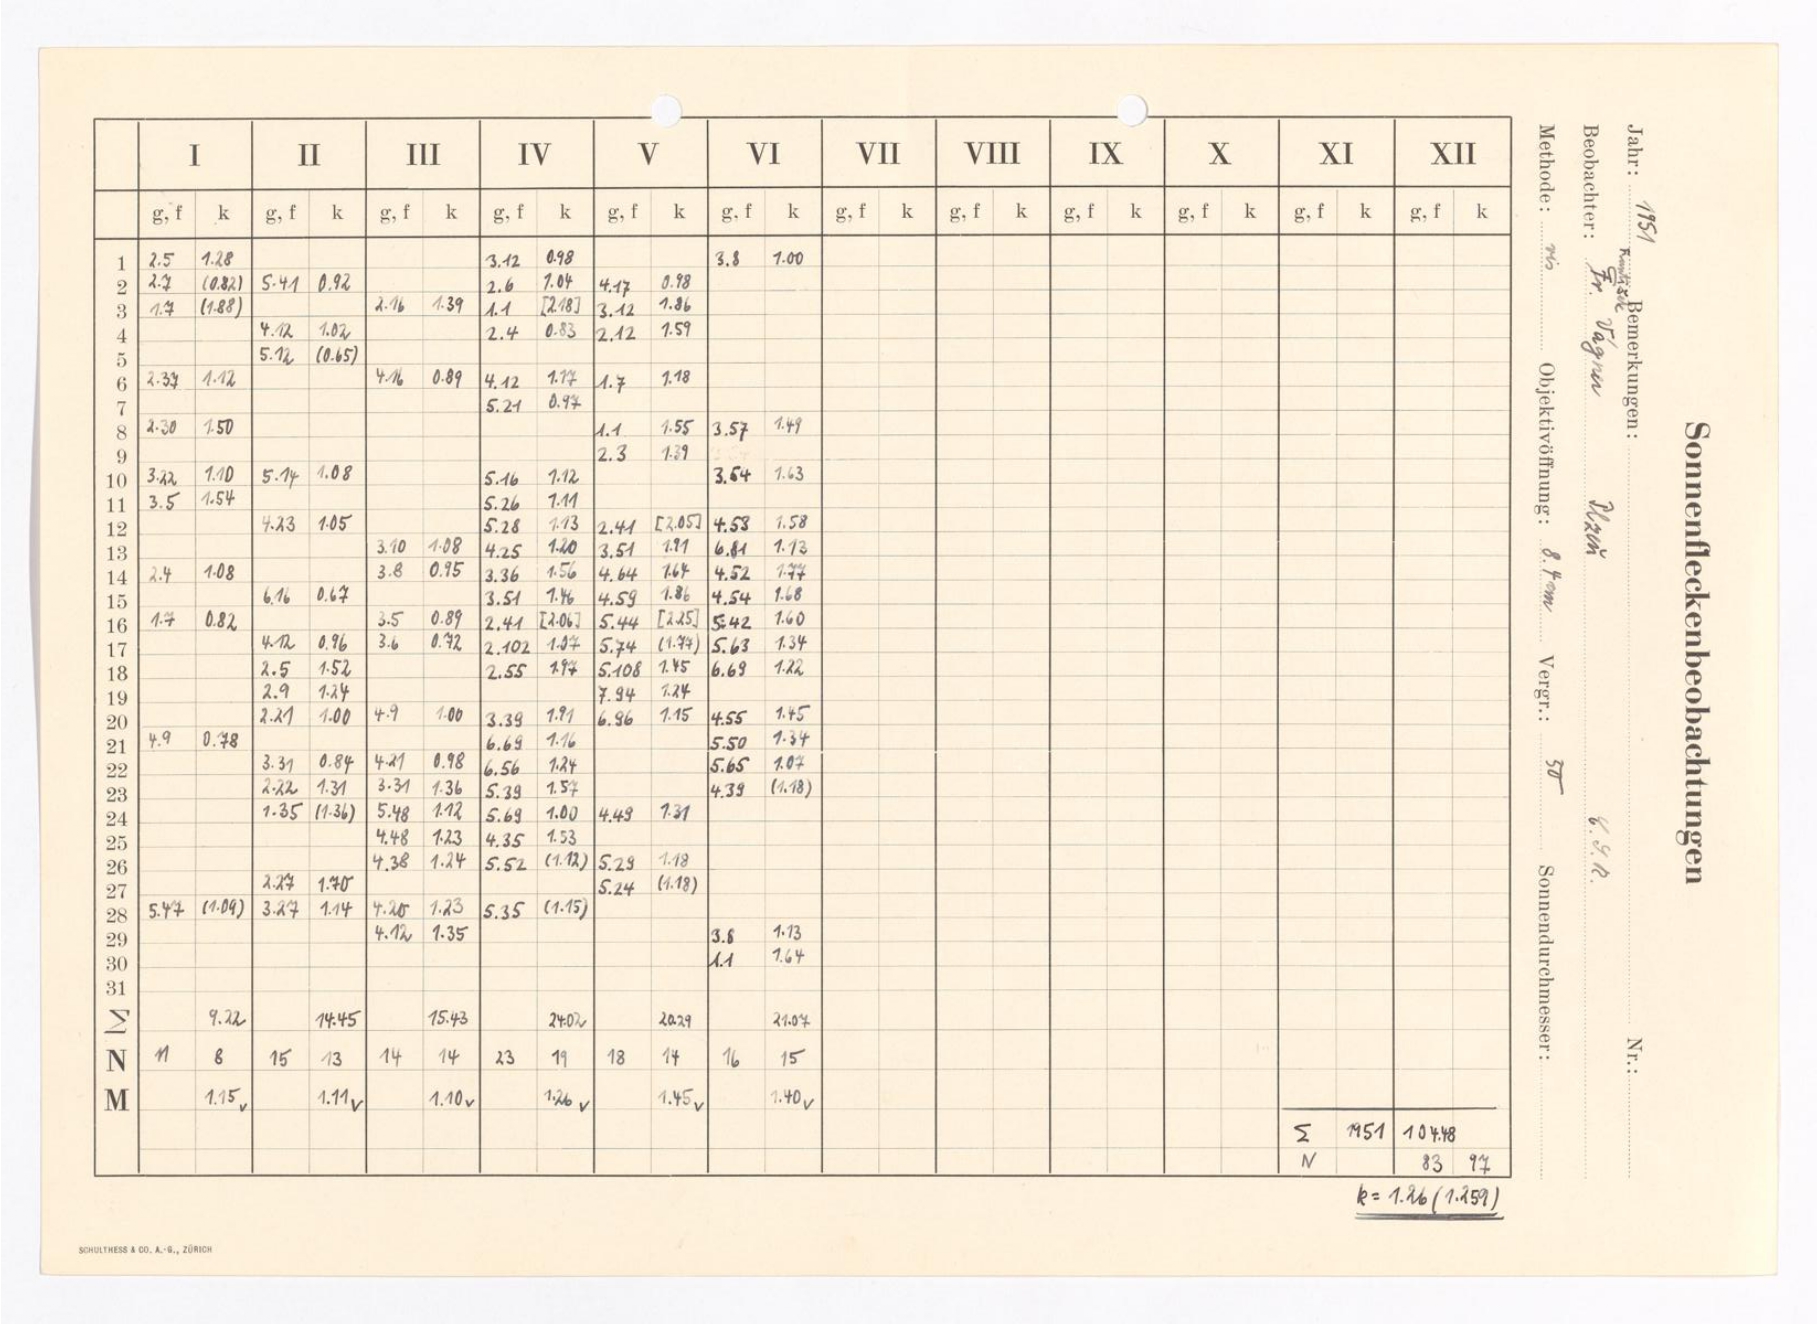 Sonnenfleckenbeobachtungen
Jahr: 1951 Bemerkungen: Nr.:
Beobachter: Fr. Vágner Plzeň Č.S.R.
Methode: vis Objektivöffnung: 8.4cm Vergr.: 50 Sonnendurchmesser:
I II III IV V VI VII VIII IX X XI XII
g, f k g, f k g, f k g, f k g, f k g, f k g, f k g, f k g, f k g, f k g, f k g, f k
1 2.5 1.28 3.12 0.98 3.8 1.00
2 2.7 (0.82) 5.41 0.92 2.6 1.04 4.17 0.98
3 1.7 (1.88) 2.16 1.39 1.1 [2.18] 3.12 1.86
4 4.12 1.02 2.4 0.83 2.12 1.59
5 5.12 (0.65)
6 2.37 1.12 4.16 0.89 4.12 1.17 1.7 1.18
7 5.21 0.97
8 2.30 1.50 1.1 1.55 3.57 1.49
9 2.3 1.39
10 3.22 1.10 5.14 1.08 5.16 1.12 3.54 1.63
11 3.5 1.54 5.26 1.11
12 4.23 1.05 5.28 1.13 2.41 [2.05] 4.53 1.58
13 3.10 1.08 4.25 1.20 3.51 1.91 6.81 1.13
14 2.4 1.08 3.8 0.95 3.36 1.56 4.64 1.64 4.52 1.77
15 6.16 0.67 3.51 1.46 4.59 1.86 4.54 1.68
16 1.7 0.82 3.5 0.89 2.41 [2.06] 5.44 [2.25] 5.42 1.60
17 4.12 0.96 3.6 0.72 2.102 1.07 5.74 (1.77) 5.63 1.34
18 2.5 1.52 2.55 1.97 5.108 1.45 6.69 1.22
19 2.9 1.24 7.94 1.24
20 2.21 1.00 4.9 1.00 3.39 1.91 6.96 1.15 4.55 1.45
21 4.9 0.78 6.69 1.16 5.50 1.34
22 3.31 0.84 4.21 0.98 6.56 1.24 5.65 1.07
23 2.22 1.31 3.31 1.36 5.39 1.57 4.39 (1.18)
24 1.35 (1.36) 5.48 1.12 5.69 1.00 4.49 1.31
25 4.48 1.23 4.35 1.53
26 4.38 1.24 5.52 (1.12) 5.29 1.18
27 2.27 1.70 5.24 (1.18)
28 5.47 (1.09) 3.27 1.14 4.20 1.23 5.35 (1.15)
29 4.12 1.35 3.8 1.13
30 1.1 1.64
31
Σ 9.22 14.45 15.43 24.02 20.29 21.07
N 11 8 15 13 14 14 23 19 18 14 16 15
M 1.15 v 1.11 v 1.10 v 1.26 v 1.45 v 1.40 v
Σ 1951 104.48
N 83 97
k = 1.26 (1.259)
SCHULTHESS & CO. A.-G., ZÜRICH